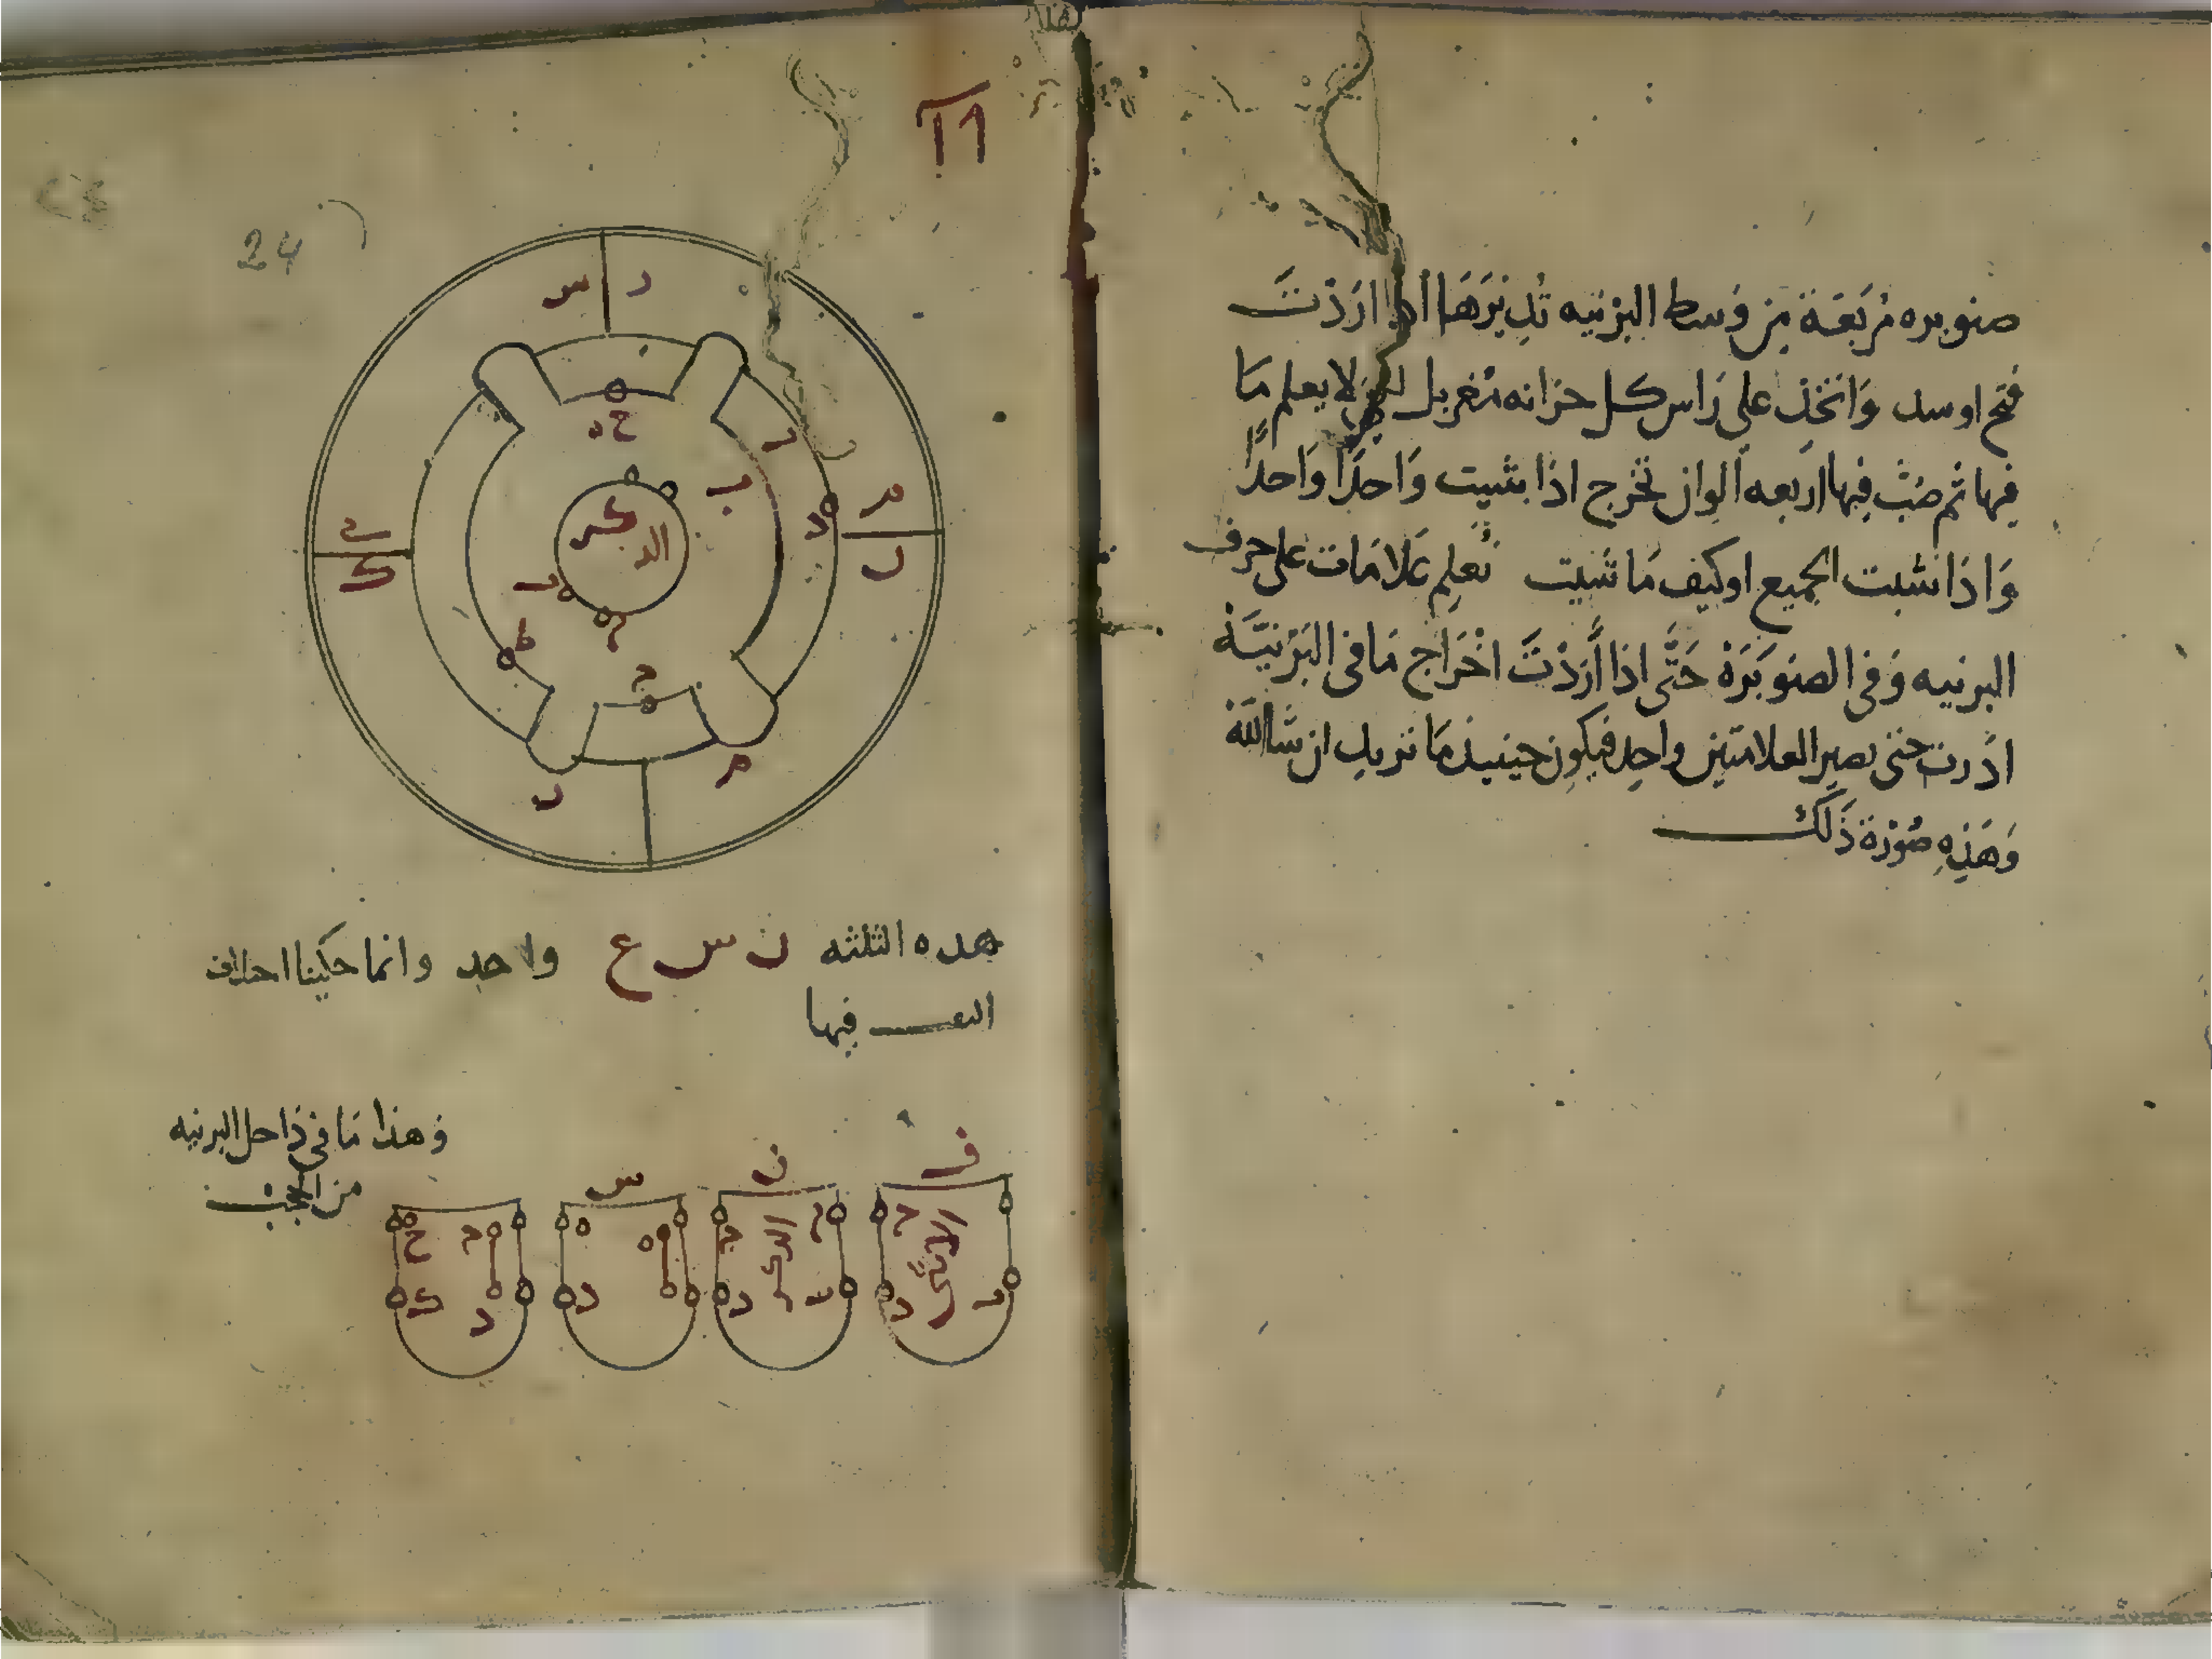 صنوبره مربعة من وسط البرنيه تديرها اذا اردت
فتح اوسد وانخذ على راس كل خزانه مغربل لا يعلم ما
فيها ثم صب فيها اربعه الوان تخرج اذا شيت واحدا واحدا
واذا شيت الجميع اوكيف ما شيت تعلم علامات على حرف
البرنيه وفى الصنوبرة حتى اذا أردت اخراج مافى البرنية
ادرت حتى تصير العلامتين واحد فيكون حينيذ ما تريد ان شاالله
وهذه صورة ذلك
24
س د
ح ه
د
ب
م
ن
د
الد كر
ب
ط
م
ح
ن
م
هده الثلثه ن س ع واحد وانما حكينا احلاف
النعـــ فيها
وهذا ما في داحل البرنيه
من الجب
ف
ن
س
الانثى
الدكر